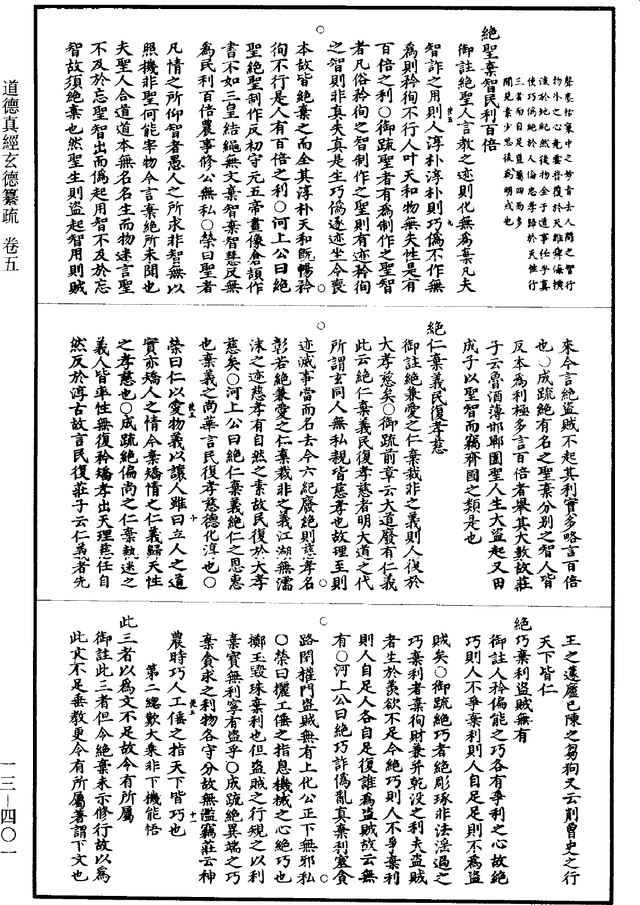 聲塵怙棄中之
物外之心竟
三者而自足屬四而多
聞見素少思復為明戒也
絕聖棄智民利百倍
御註絕聖人言教之迹則化無為棄凡夫
智詐之用則人淳朴淳朴則巧偽不作無
為則矜徇不行人叶天和物無失性是有
百倍之利○御疏聖者有為制作之聖智
者凡俗矜徇之智制作之聖則有迹矜徇
之智則非真失真是生巧偽逐迹坐令喪
本故皆絕棄之而全其淳朴天和既暢矜
徇不行是人有百倍之利○河上公曰絕
聖絕聖制作反初守元五帝畫像倉頡作
書不如三皇結繩無文棄智棄智慧反無
為民利百倍農事修公無私○榮曰聖者
凡情之所仰智者愚人之所求非智無以
照機非聖何能宰物今言棄絕所未聞也
夫聖人合道道本無名名生而物迷言聖
不及於忘聖智出而偽起用智不及於忘
智故須絕棄也然聖生則盜起智用則賊
來今言絕盜賊不起其利實多略言百倍
也○成疏絕有名之聖棄分別之智人皆
反本為利極多言百倍者舉其大數故莊
子云魯酒薄邯鄲圍聖人生大盜起又田
成子以聖智而竊齊國之類是也
絕仁棄義民復孝慈
御註絕兼愛之仁棄裁非之義則人復於
大孝慈矣○御疏前章云大道廢有仁義
此云絕仁棄義民復孝慈者明大道之代
所謂玄同人無私親皆慈孝也故理至則
迹滅事當而名去今六紀廢絕則慈孝名
彰若絕兼愛之仁棄裁非之義江湖無濡
沫之迹慈孝有自然之素故民復於大孝
慈矣○河上公曰絕仁棄義絕仁之恩惠
也棄義之尚華言民復孝慈德化淳也○
榮曰仁以愛物義以讓人雖曰立人之道
實亦矯人之情今棄矯情之仁義歸天性
之孝慈也○成疏絕偏尚之仁棄執迷之
義人皆率性無復矜矯孝出天理慈任自
然反於淳古故言民復莊子云仁義者先
王之蘧廬已陳之芻狗又云削曾史之行
天下皆仁
絕巧棄利盜賊無有
御註人矜偏能之巧各有爭利之心故絕
巧則人不爭棄利則人自足足則不為盜
賊矣○御疏絕巧者絕彫琢非法淫過之
巧棄利者棄徇財兼并乾沒之利夫盜賊
者生於羨欲不足今絕巧則人不爭棄利
則人自足人各自足復誰為盜賊故云無
有○河上公曰絕巧詐偽亂真棄利塞貪
路閉權門盜賊無有上化公正下無邪私
○榮曰攦工倕之指息機械之心絕巧也
擲玉毀珠棄利也但盜賊之行規之以利
棄寶無利寧有盜乎○成疏絕異端之巧
棄貪求之利物各守分故無濫竊莊云神
農時巧人工倕之指天下皆巧也
第二總歎大乘非下機能悟
此三者以為文不足故令有所屬
御註此三者但令絕棄未示修行故以為
此文不足垂教更令有所屬著謂下文也
道德真經玄德纂疏 卷五
一三-四〇一